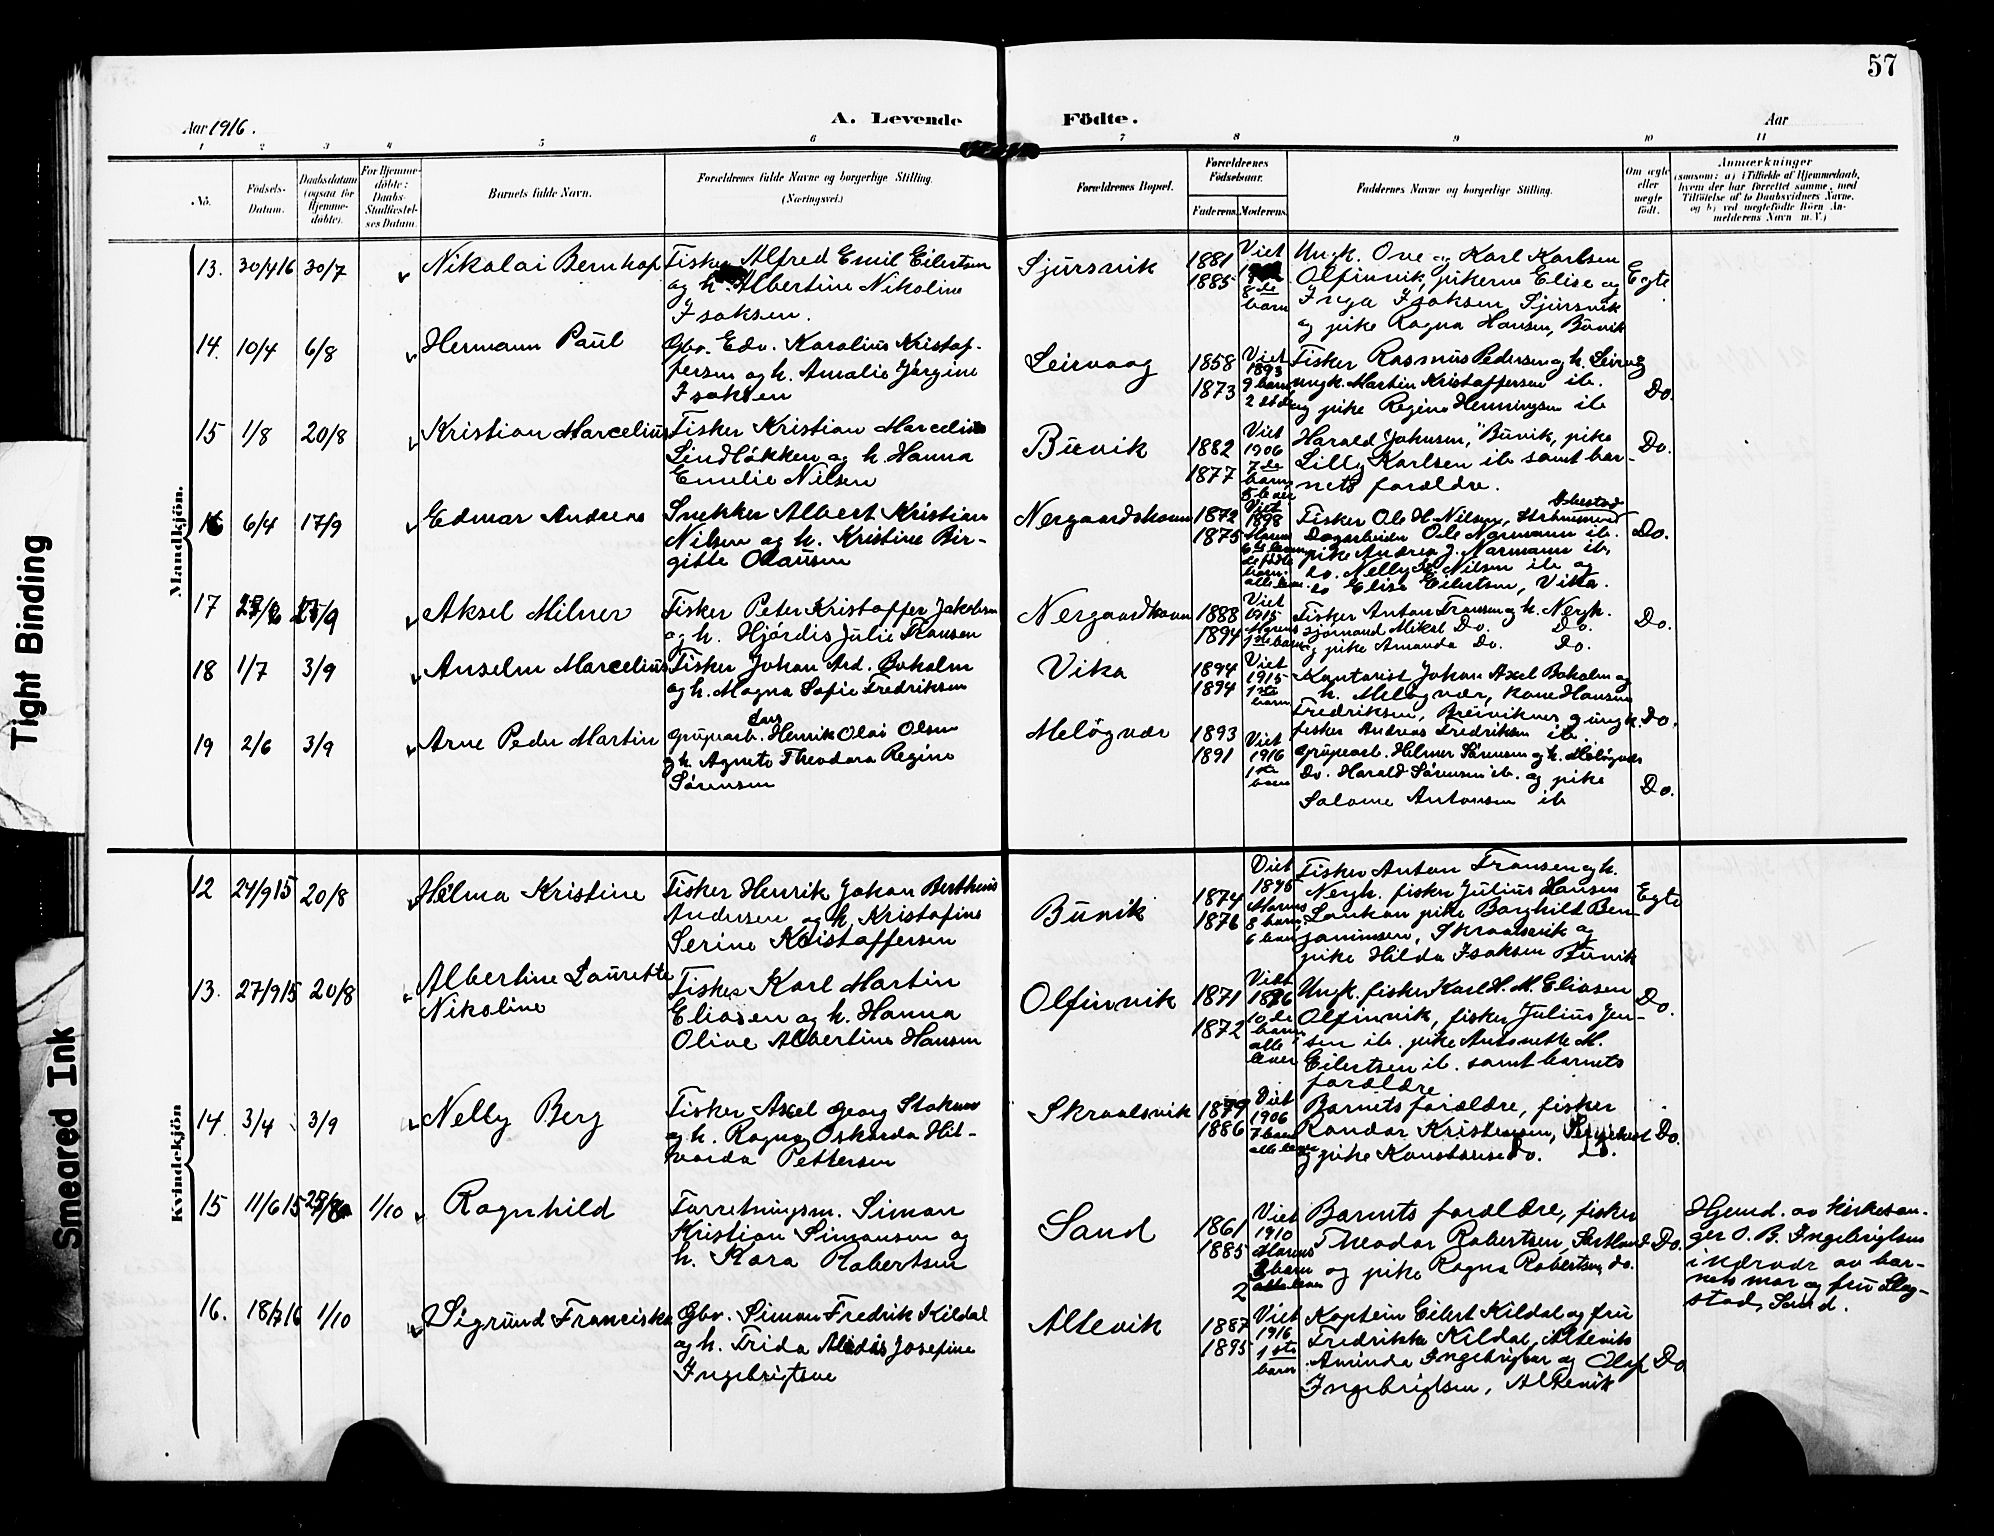 57
Aar 1916.
A. Levende
Födte.
Aar
1 2 3 4 5 6 7 8 9 10 11
No.
Födsels-Datum.
Daabsdatum (ogsaa for Hjemme-döbte).
For Hjemme-döbte: Daabs-Stadfæstel-ses Datum.
Barnets fulde Navn.
Forældrenes fulde Navne og borgerlige Stilling.
(Næringsvei.)
Forældrenes Bopæl.
Forældrenes Födselsaar.
Faderens. Moderens.
Faddernes Navne og borgerlige Stilling.
Om ægte eller uægte födt.
Anmærkninger
(saasom: a) i Tilfælde af Hjemmedaab, hvem der har forrettet samme, med Tilföielse af to Daabsvidners Navne, og b) ved uægtefödte Börn An-melderens Navn m.V.)
Mandkjön.
13. 30/4 16 30/7 Nikolai Bernhof
Fisker Alfred Emil Eilertsen
og h. Albertine Nikoline
Isaksen.
Sjursvik 1881 1885
Viet
8de
barn
Ungk. Ove og Karl Karlsen
Olfinvik, pikerne Elise og
Inga Isaksen, Sjursvik
og pike Ragna Hansen, Buvik
Egte
14. 10/4 6/8 Hermann Paul
Gbr. Edv. Karolius Kristof-
fersen og h. Amalie Jørgine
Isaksen
Leirvaag 1858 1873
Viet
1893
9 barn
Fisker Rasmus Pedersen og h. Leirvåg
ungk. Martin Kristoffersen ib.
og pike Regine Henningsen ib
Do.
15 1/8 20/8 Kristian Marcelius
Fisker Kristian Marcelius
Lindløkken og h. Hanna
Emelie Nilsen
Buvik 1882 1877
Viet
1906
7de
barn,
5 lever
Harald Johnsen, Buvik, pike
Lilly Karlsen ib samt bar-
nets forældre.
Do.
16 6/4 17/9 Edmar Andreas
Snekker Albert Kristian
Nilsen og h. Kristine Bir-
gitte Olausen
Nergaardshavn 1872 1875
Viet
1898
Fisker Ole H. Nilsen,
Dagarbeider Ole Normann ib.
pike Andrea J. Normann ib,
do. Nelly Nilsen ib og
do Elise Eilertsen, Vika.
Do.
17 Aksel Milner
Fisker Peter Kristoffer Jakobsen
og h. Hjørdis Julie Fransen
Nergaardhavn 1888 1894
Viet
1915
1ste barn
Fisker Anton Fransen og h. Nergh.
sjømand Mikal Do. Do.
og pike Amanda Do. Do.
Do.
18 1/7 3/9 Anselm Marcelius
Fisker Johan Ard. Boholm
og h. Magna Sofie Fredriksen
Vika 1894 1894
Viet
1915
1ste
barn
Kontorist Johan Axel Boholm og
h. Meløgnær, kone Hansine
Fredriksen, Breiviknes og ungk.
fisker Andreas Fredriksen ib.
Do.
19 2/6 3/9 Arne Peder Martin
Grupearb. Henrik Olai Olsen
og h. Agnete Theodora Regine
Sørensen
Meløgnær 1893 1891
Viet
1916
1ste
barn
Grupearb. Helmer Sørensen og h. Meløgnær
Do. Harald Sørensen ib. og pike
Salome Antonsen ib
Do.
Kvindekjön
12 24/9 15 20/8 Helma Kristine
Fisker Henrik Johan Bertheus
Andersen og h. Kristofine
Serine Kristoffersen
Buvik 1874 1876
Viet
1895
8 barn,
6 lever
Fisker Anton Fransen og h.
Nergh. fisker Julius Hansen
Lankan pike Borghild Ben-
jaminsen, Skraalsvik og
pike Hilda Isaksen Buvik
Egte
13. 27/9 15 20/8 Albertine Laurette
Nikoline
Fisker Karl Martin
Eliasen og h. Hanna
Olive Albertine Hansen
Olfinvik 1871 1872
Viet
1896
10de
barn,
alle
lever
Ungk. fisker Karl H. M. Eliasen
Olfinvik, fisker Julius Jen-
sen ib. pike Antonette M.
Eilertsen ib. samt barnets
forældre
Do.
14. 3/4 3/9 Nelly Berg
Fisker Axel Georg Stokner
og h. Ragna Oskarda Hil-
varda Pettersen
Skraalsvik 1879 1886
Viet
1906
7 barn
alle lever
Barnets forældre, fisker
Randor Kristensen,
og pike Konstanse do. do.
Do.
15 11/6 15 1/10 Ragnhild
Forretningsm. Simon
Kristian Simonsen og
h. Kara Robertsen
Sand 1861 1885
Viet
1910
2
Barnets forældre, fisker
Theodor Robertsen, Sørtland
og pike Ragna Robertsen do.
Do.
Hjemd. av kirkesan-
ger O. B. Ingebrigtsen
i nærvær av bar-
nets mor og fru Slog-
stad, Sand.
16. 18/7 16 1/10 Sigrund Franciska
Gbr. Simon Fredrik Kildal
og h. Frida Alvdis Josefine
Ingebrigtsen
Altevik 1887 1895
Viet
1916
1ste
barn
Kaptein Eilert Kildal og fru
Fredrikke Kildal, Altevik
Aminda Ingebrigtsen og Olaf
Ingebrigtsen, Altevik
Do
Tight Binding
Smeared Ink